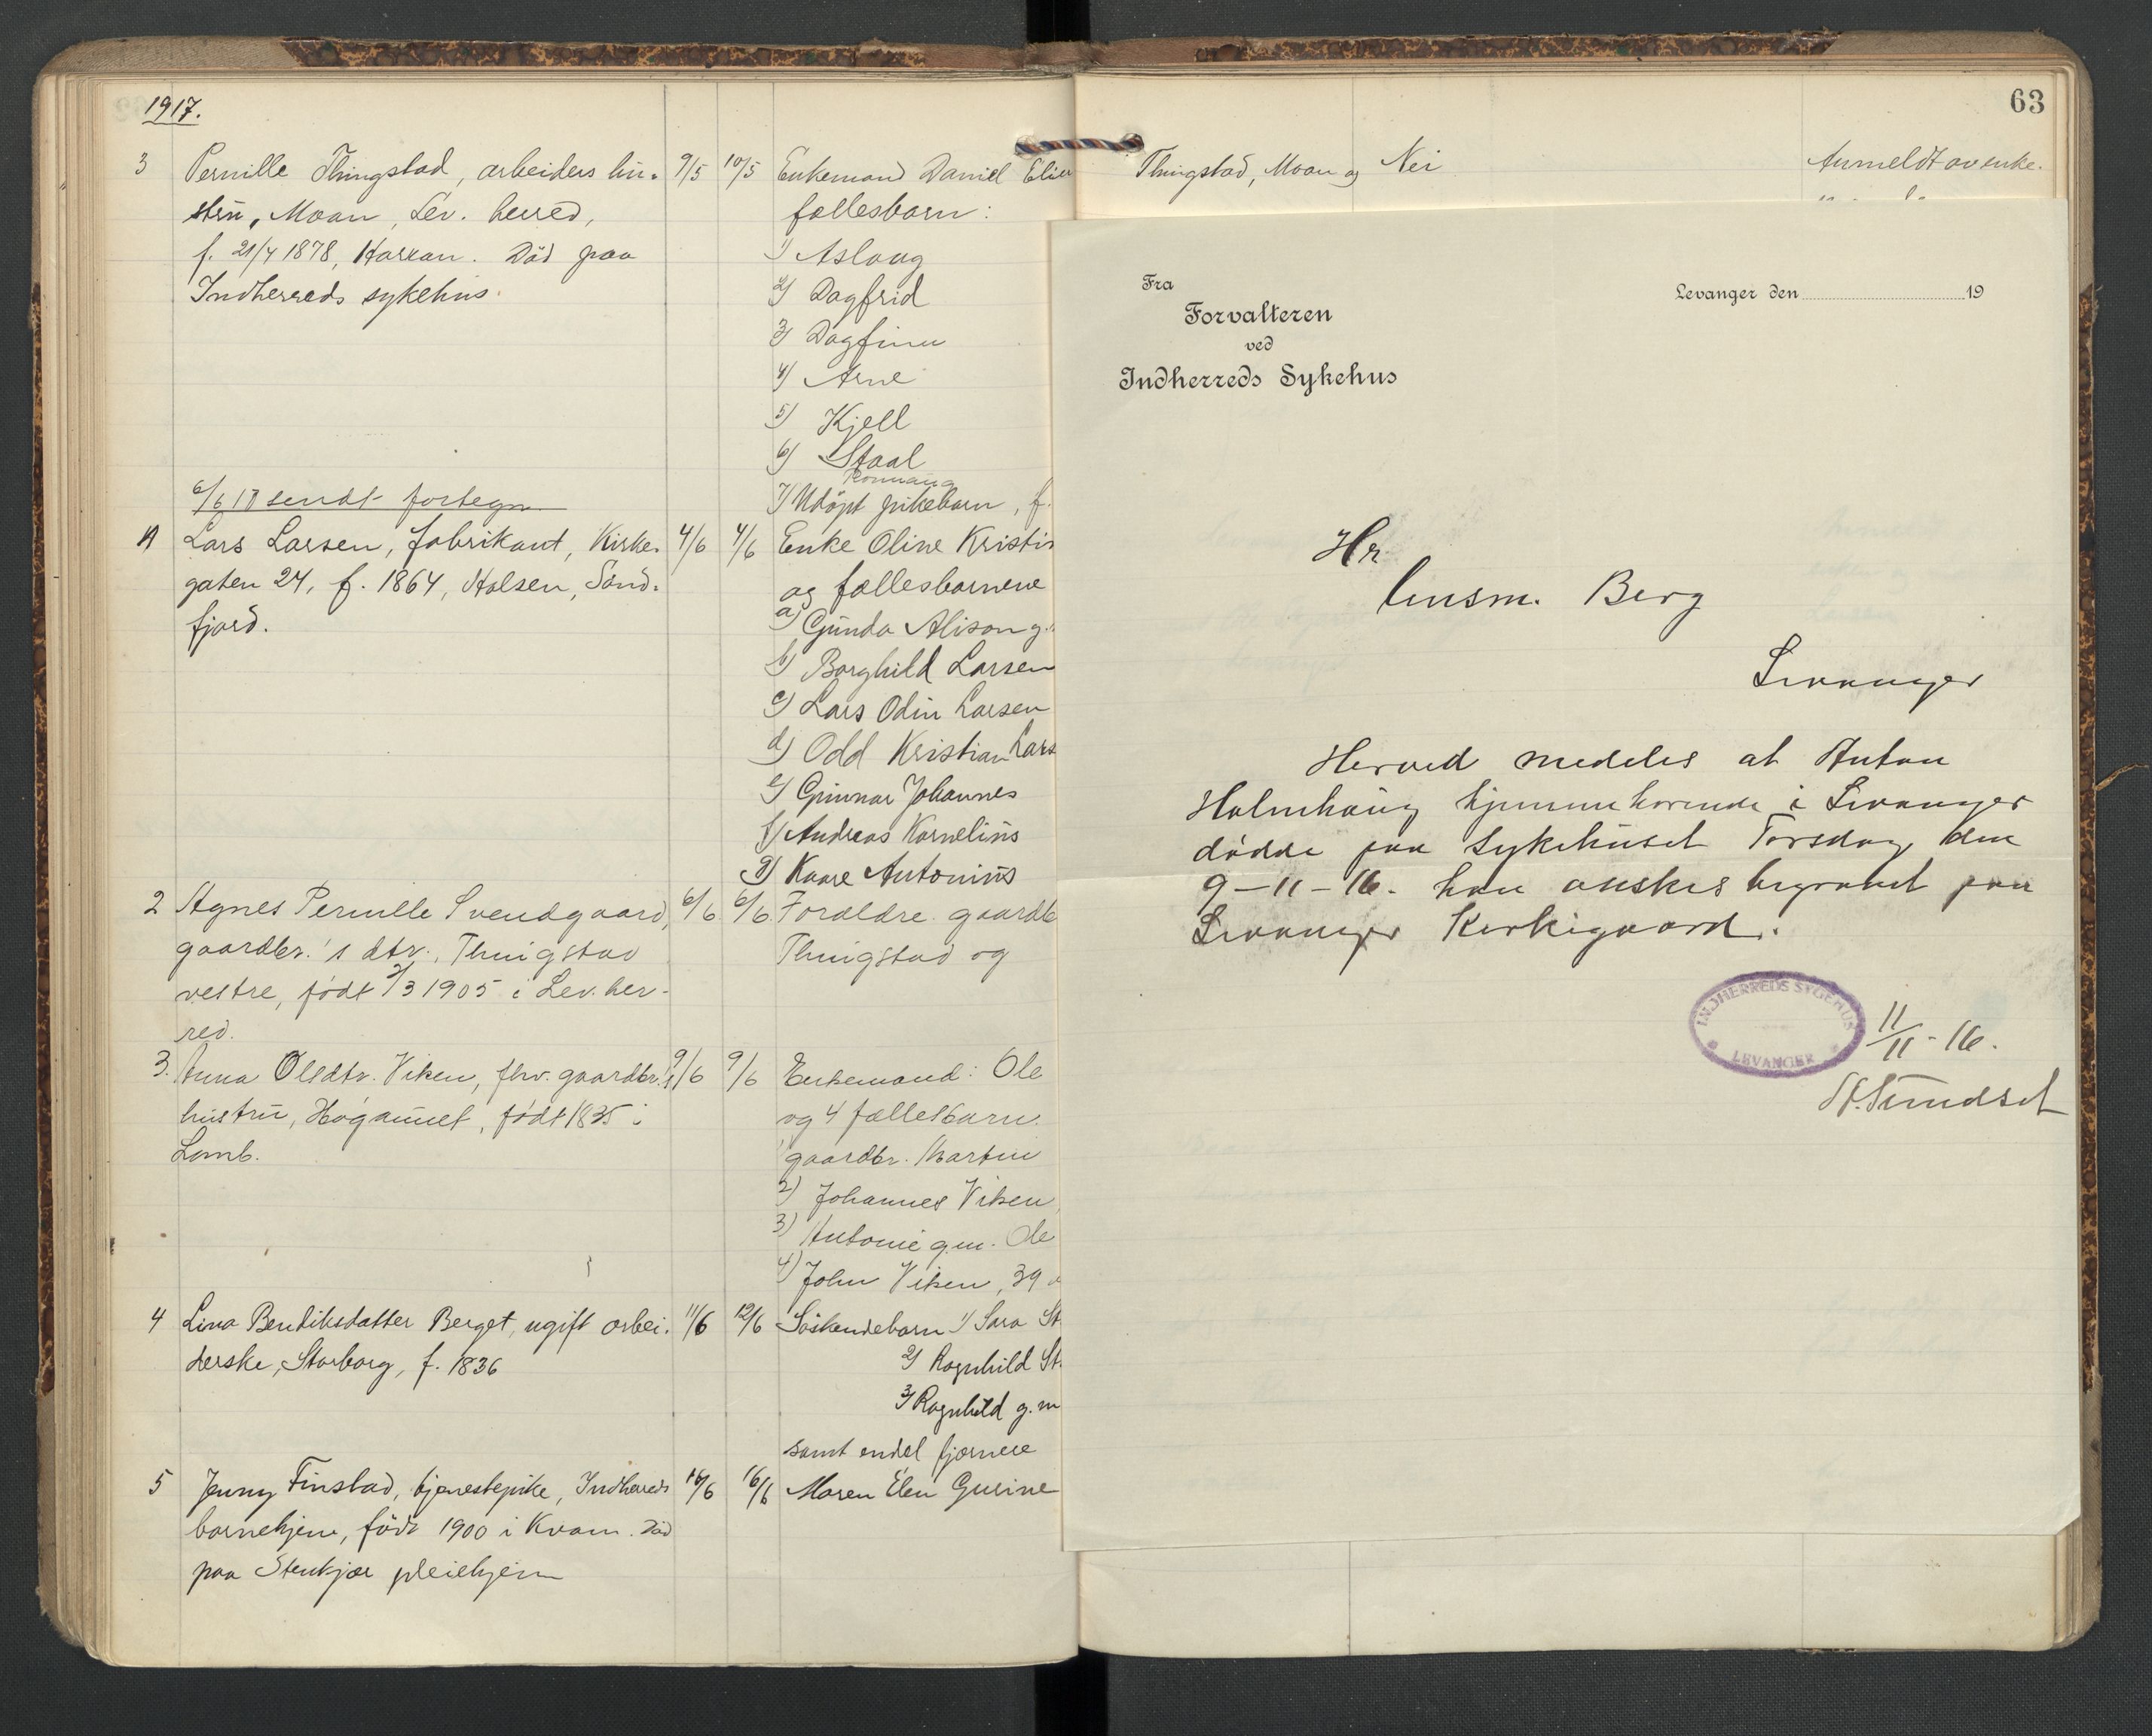 1917.
3 Pernille Thingstad, arbeiders hu- 9/5 10/5 Enkemand Daniel Elia
stru, Moan, Lev. herred, fællesbarn:
f. 21/4 1878, Karran. Död paa 1) Aslaug
Indherreds sykehus. 2) Dagfrid
3) Dagfinn
4) Arne
5) Kjell
6) Staal
Ronnaug
6/6 17 sendt fortegn. 7) Udöpt pikebarn, f.
1 Lars Larsen, fabrikant, Kirke- 4/6 4/6 Enke Oline Kristin
gaten 24, f. 1864, Holsen, Sönd- og fællesbarnene
fjord. a) Gunda Alison g.
b) Borghild Larsen
c) Lars Odin Larsen
d) Odd Kristian Lars
e) Gunnar Johannes
f) Andreas Kornelius
g) Kaare Antonius
2 Agnes Pernille Svendgaard, 6/6 6/6 Forældre gaardb
gaardbr.'s dtr., Thingstad Thingstad og
vestre, født 2/3 1905 i Lev. her-
red.
3. Anna Olsdtr. Viken, fhv. gaardbr.'s 9/6 9/6 Enkemand: Ole
hustru, Høgaunet, født 1835 i og 4 fællesbarn.
Lomb. gaardbr. Martin
2) Johannes Viken
3) Antonie g.m. Ole
4) John Viken, 39
4 Lina Bendiksdatter Berget, ugift arbei- 11/6 12/6 Söskendebarn 1) Sara St
derske, Storborg, f. 1836 2) Ragnhild St.
3) Ragnhild g. m
samt endel fjernere
5 Jenny Finstad, tjenestepike, Indherreds 16/6 16/6 Maren Elen Gurine
barnehjem, född 1900 i Kvam. Död
paa Stenkjær pleiehjem
63
Thingstad, Moan og Nei Anmeldt av enke-
Fra
Forvalteren
ved
Indherreds Sykehus
Levanger den 19
Hr
Lensm. Berg
Levanger
Herved medeles at Anton
Holmhaug hjemmehørende i Levanger
dødde paa Sykehuset Torsdag den
9-11-16. han ønskes begravet paa
Levanger Kirkegaard.
INDHERREDS SYGEHUS
LEVANGER
11/11-16.
Sundset